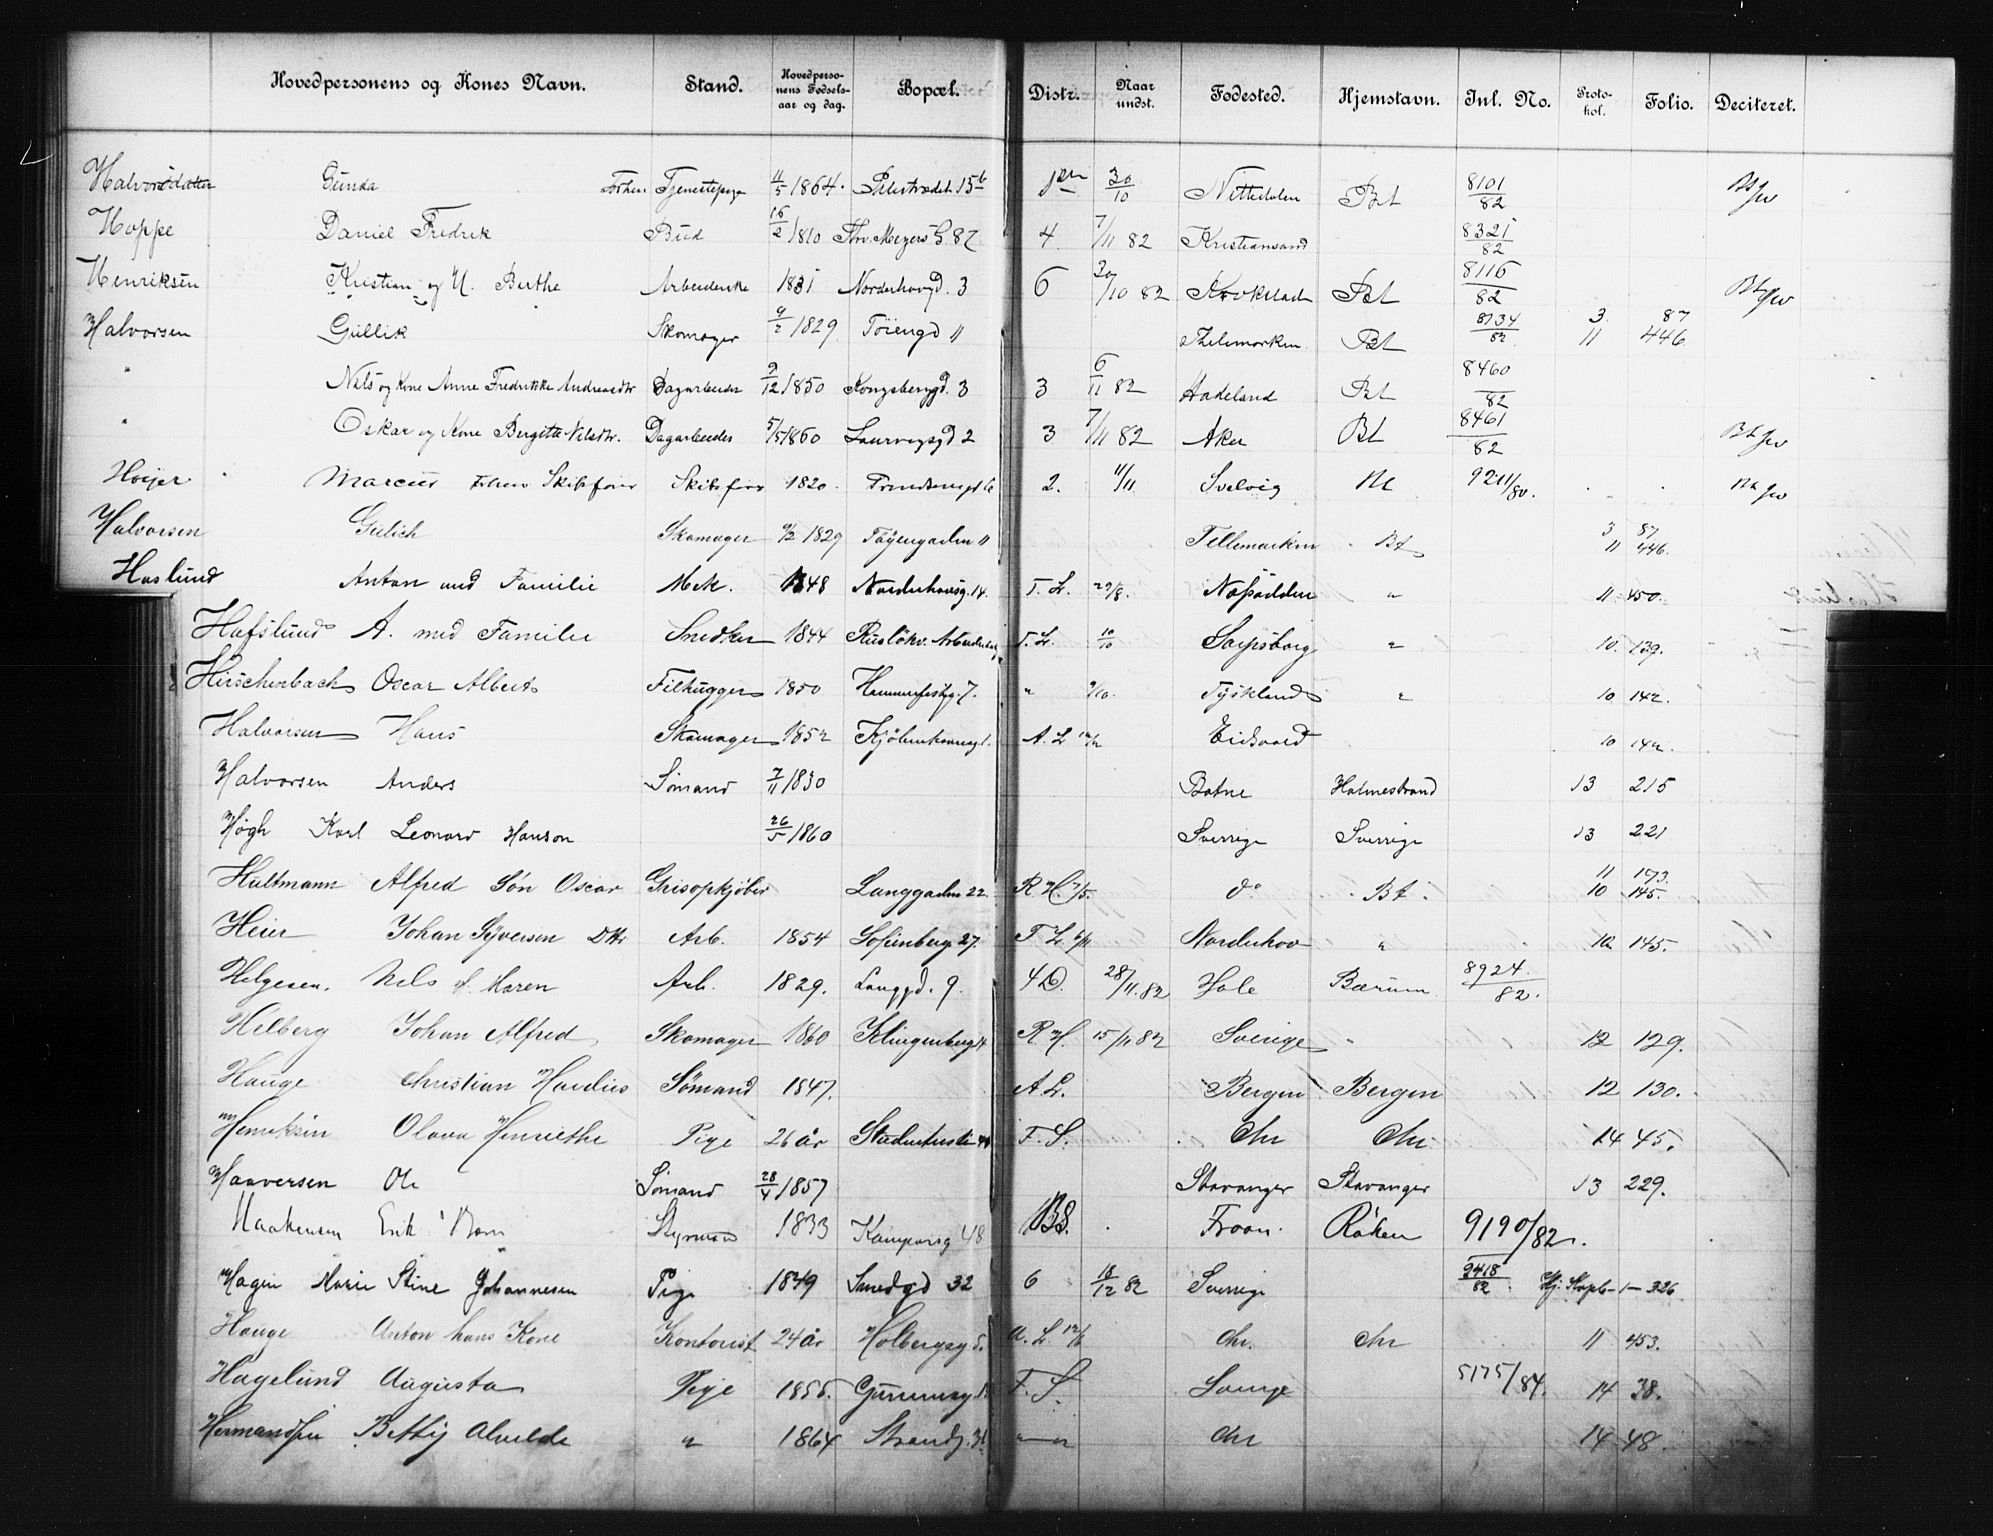 Hovedpersonens og Kones Navn. Stand. Hovedperso- nens Fødsels- aar og dag. Bopæl. Distr. Naar undst. Fødested. Hjemstavn. Inl. No. Proto- kol. Folio. Deciteret.
Halvorsdatter Gunda Tjenestepige 11/5 1864. Pilestrædet 15 b 30/10 Nittedalen Bt 8101/82
Hoppe Daniel Fredrik Bud 16/2 1810 Thv. Meyers G. 87 4 7/11 82 Kristiansand 8321/82
Henriksen Kristian og H. Berthe Arbeiderske 1831 Norderhovgd. 3 6 30/10 82 Krokstad Bt 8116/82
Halvorsen Gullik Skomager 9/2 1829 Töiengd 11 Thelemarken Bt 8134/82 3 87 11 446
" Nils og Kone Anne Fredrikke Andreasdtr Dagarbeider 9/12 1850 Kongsberggd. 3 3 6/11 82 Hadeland Bt 8460/82
" Oskar og Kone Bergitte Nilsdtr. Dagarbeider 5/5 1860 Laurvigsgd 2 3 7/11 82 Aker Bt 8461/82
Hoijer Marcus Skibsfører 1820 2. 11/11 Svelvig 9211/80.
Halvorsen Gulich Skomager 9/2 1829 Töyengaden 11 Tellemarken Bt 3 87 11 446.
Haslund Anton med Familie Mek. 1848 Norderhovsg. 14. F. L. 29/8. Næsodden " 11 450.
Hafslund A. med Familie Snedker 1844 Ruslökv. F. L. 10/10 Sarpsborg " 10. 139.
Hirschenbach Oscar Albert Filhugger 1850 Hammerfestg. 7. " 9/10. Tÿskland " 10 142.
Halvorsen Hans Skomager 1852 Kjöbenhavng. A. L. Eidsvold 10 142.
Halvorsen Anders Sömand 7/11 1830 Botne Holmestrand 13 215
Høgh Karl Leonard Hanson 26/5 1860 Sverrige Sverrige 13 221
Hultmann Alfred Søn Oscar Grisopkjöber Langgaden 22. R H. 7/5. do Bt. 11 173. 10 145.
Heier Johan Syversen Dttr Arb. 1854 Sofienberg 27. F L. 6/11 Norderhov " 10 145.
Helgesen. Nels H. Maren Arb. 1829. Langgd. 9. 4 D. 28/11. 82 Hole Bærum 8924./82.
Helberg Johan Alfred Skomager 1860 Klingenberg 4 R H. 15/11 82 Sverige " 12 129.
Hauge Christian Sömand 1847. A L. Bergen Bergen 12 130.
Henriksen Olava Henriethe Pige 26 år F. S. Chr Chr. 14 45.
Haaversen Ole Sömand 28/4 1857 Stavanger Stavanger 13 229.
Haakensen Erik Styrmand 1833 Kampensg 48 BS. Froon. Röken 9190/82.
Hagen Marie Stine Johannesen Pige 1849 Smedgd 32 6 18/12 82 Sverrige 9418/82 1 – 326
Hauge Anton hans Kone Kontorist 24 år Holbergsg 5. A. L. 12/6 Chr. Chr 11 453.
Hagelund Augusta Pige 1856. F. S. 5175/84. 14 38.
Hermandsen Betty Alvilde " 1864 Strandg. " Chr 14 48.